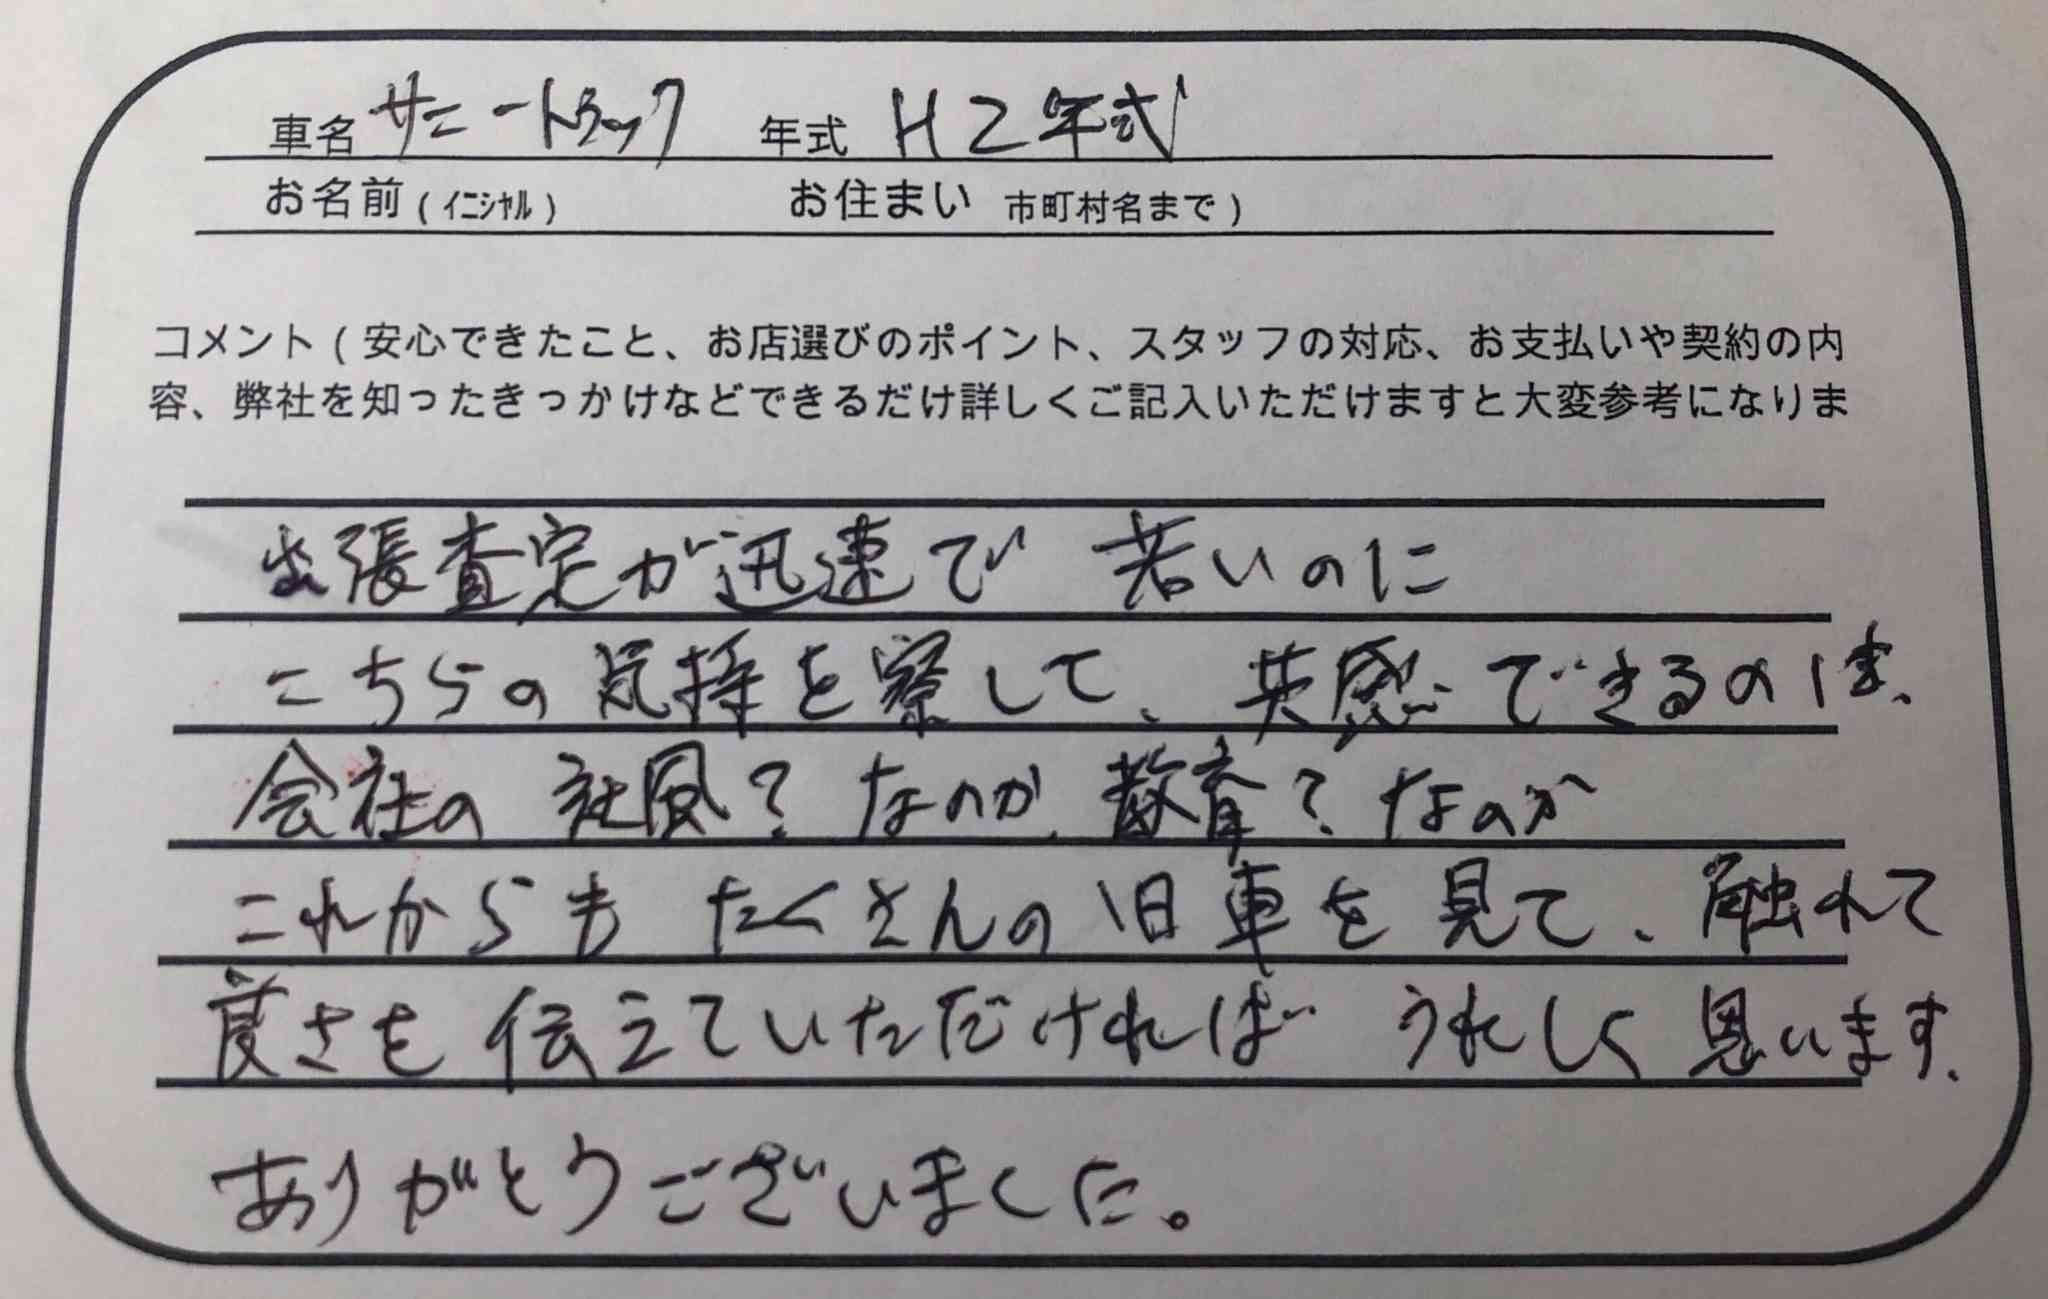 車名 サニートラック 年式 H2年式
お名前(イニシャル) お住まい 市町村名まで)
コメント(安心できたこと、お店選びのポイント、スタッフの対応、お支払いや契約の内
容、弊社を知ったきっかけなどできるだけ詳しくご記入いただけますと大変参考になりま
出張査定が迅速で 若いのに
こちらの気持を察して、共感できるのは、
会社の社風?なのか、教育?なのか
これからもたくさんの旧車を見て、触れて
良さを伝えていただければうれしく思います。
ありがとうございました。